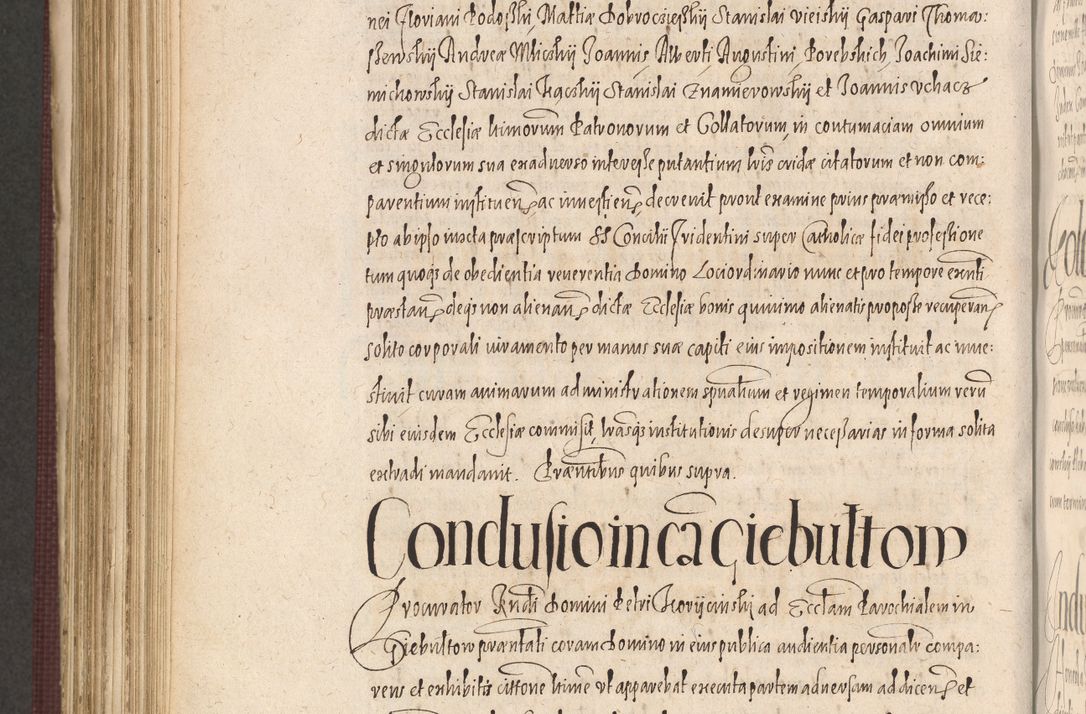 nei Floriani Podoſkij Mattiæ Dobrocżieſkij Stanislai vieiskij Gaspari Thoma:
ſzewskij Andreæ Mlicskij Joannis Alberti Augustini Porebskich Joachimi Sie:
michowskij Stanislai Kącskij Stanislai Znamierowskij et Joannis Vchacz
dictæ Ecclesiæ ltimorum Patronorum et Collatorum in contumaciam omnium
et singulorum sua exaduerso intereſse putantium lrīs cridæ citatorum et non com:
parentium instituen̄ ac inuestien̄ decreuit prout examine prius præmiſso et rece:
pto ab ipſo iuxta præscriptum SS Concilij Tridentini super Catholicæ fidei profeſsione
tum quoqȝ de obedientia reuerentia Domino Loci ordinario nunc et pro tempore exn̄ti
præstan̄ deqȝ non alienan̄ dictæ Ecclesiæ bonis quinimo alienatis pro poſse recuperan̄
solito corporali iuramento per manus suæ capiti eius impositionem instituit ac inue:
stiuit curam animarum administrationem sp̄ualium et regimen temporalium rerū
sibi eiusdem Ecclesiæ commisit, lrasqȝ institutionis desuper neceſsarias in forma solita
extradi mandauit. Præn̄tibus quibus supra.
Conclusio in cā Giebułtow
Procurator Rn̄di Domini Petri Skorijcinskij ad Eccl̄am Parochialem in
Giebultow præn̄tati coram Domino in eius publica audientia personalr̄ compa:
rens et exhibitis cittone ltime vt apparebat executa partem aduersam ad dicen̄ et